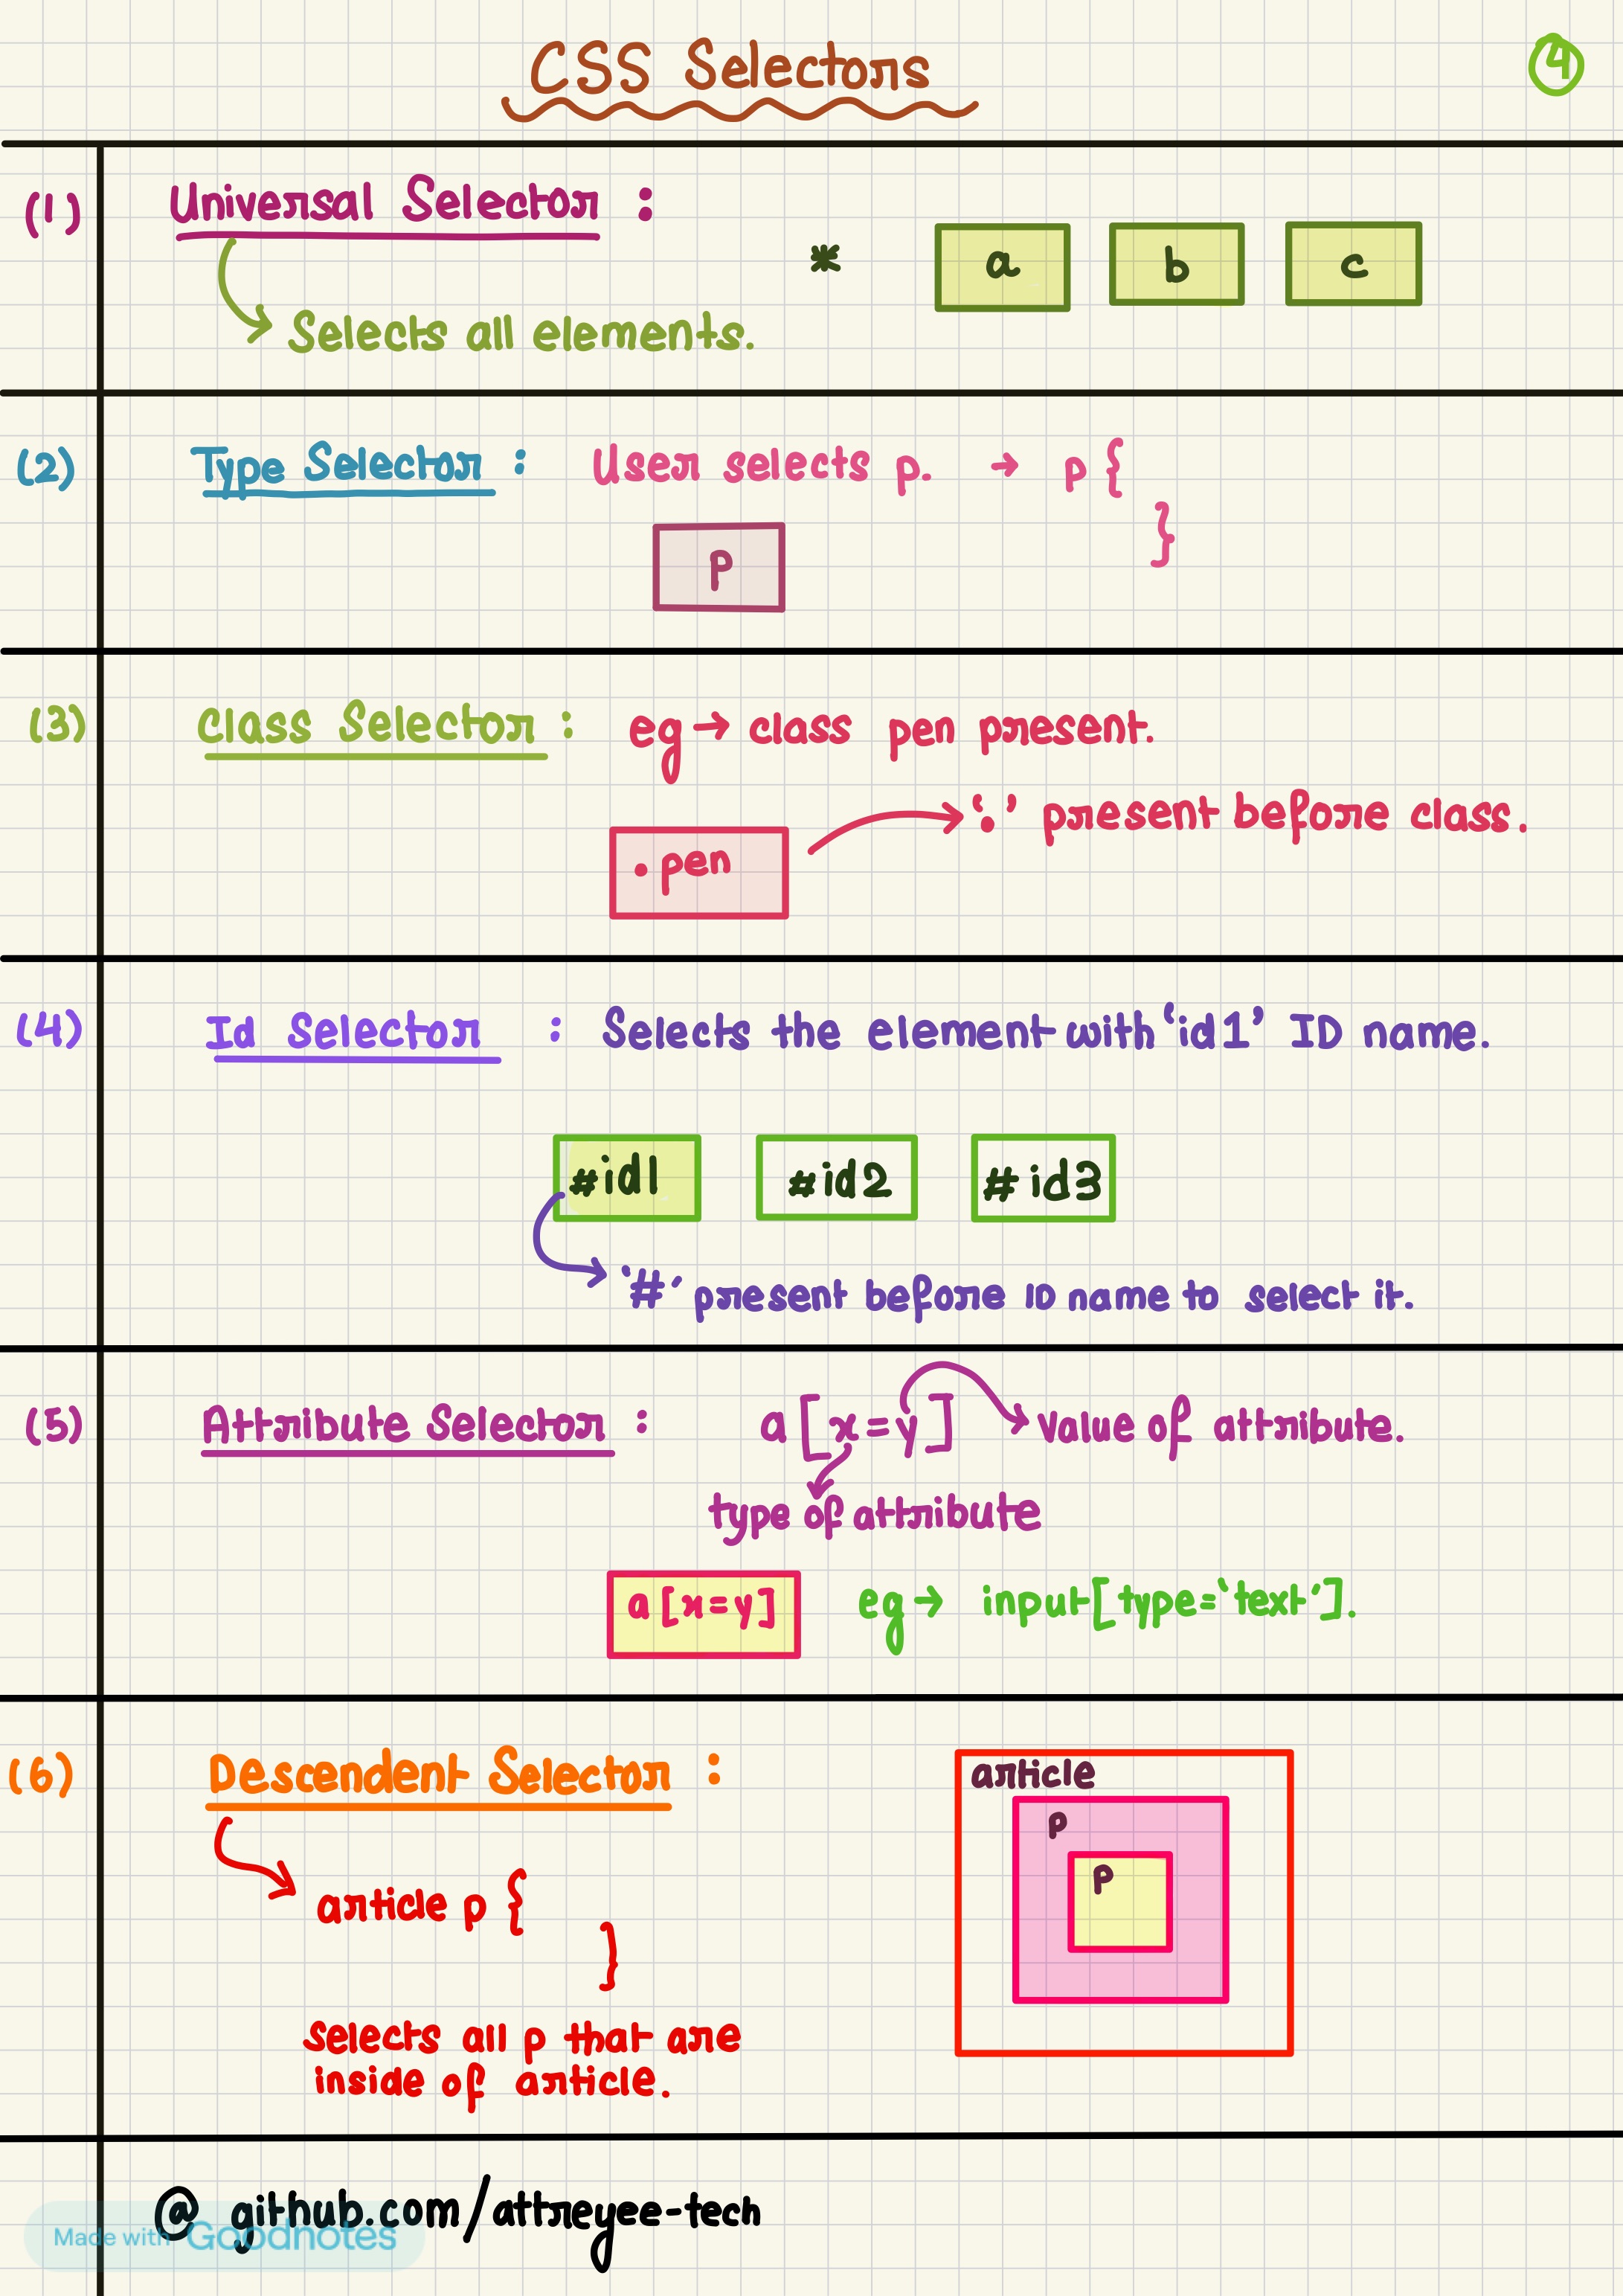 CSS Selectors
4
(1) Universal Selector :
* a b c
Selects all elements.
(2) Type Selector : User selects p. → p {
}
p
(3) Class Selector : eg → class pen present.
'.' present before class.
. pen
(4) Id Selector : Selects the element with 'id1' ID name.
#id1 #id2 #id3
'#' present before ID name to select it.
(5) Attribute Selector : a [x=y] Value of attribute.
type of attribute
a [x=y] eg → input[type='text'].
(6) Descendent Selector :
article
p
p
article p {
}
selects all p that are
inside of article.
@ github.com/attreyee-tech
Made with Goodnotes